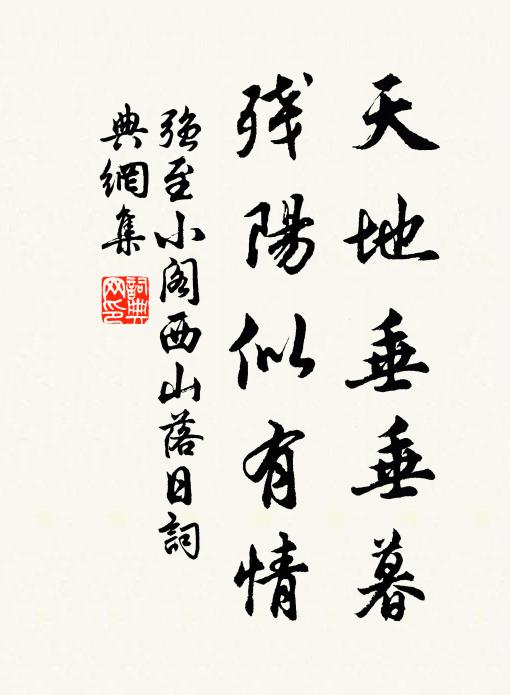 天地垂垂暮
残陽似有情
強至小阁西山落日詞
典網集
詞典
网印